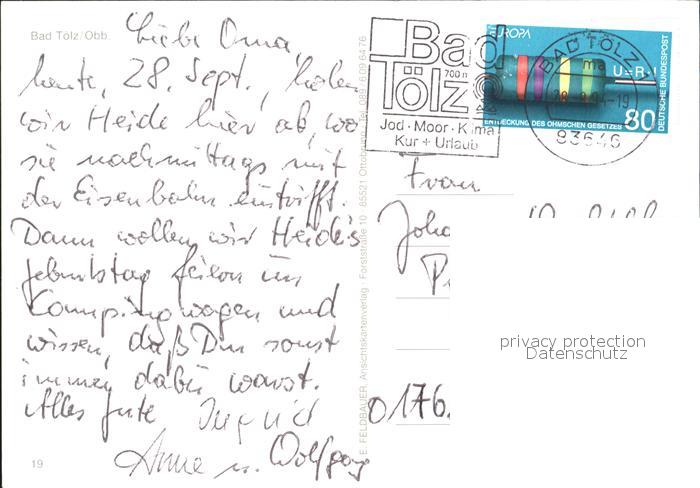 Bad Tölz/Obb.
Liebe Oma,
heute, 28. Sept., holen
wir Heide hier ab, wo
sie nachmittags mit
der Eisenbahn eintrifft.
Dann wollen wir Heide's
Geburtstag feiern im
Campingwagen und
wissen, daß Du sonst
immer dabei warst.
Alles Gute Ingrid
Anne u. Wolfgang
19
E. FELDBAUER, Ansichtskartenverlag · Forststraße 10 · 85521 Ottobrunn · Tel. 089 / 609 64 76
Bad
Tölz
700 m
Jod · Moor · Klima
Kur + Urlaub
BAD TÖLZ
-19
83646
EUROPA
U=R·I
ENTDECKUNG DES OHMSCHEN GESETZES
80
DEUTSCHE BUNDESPOST
Frau
0176.
privacy protection
Datenschutz